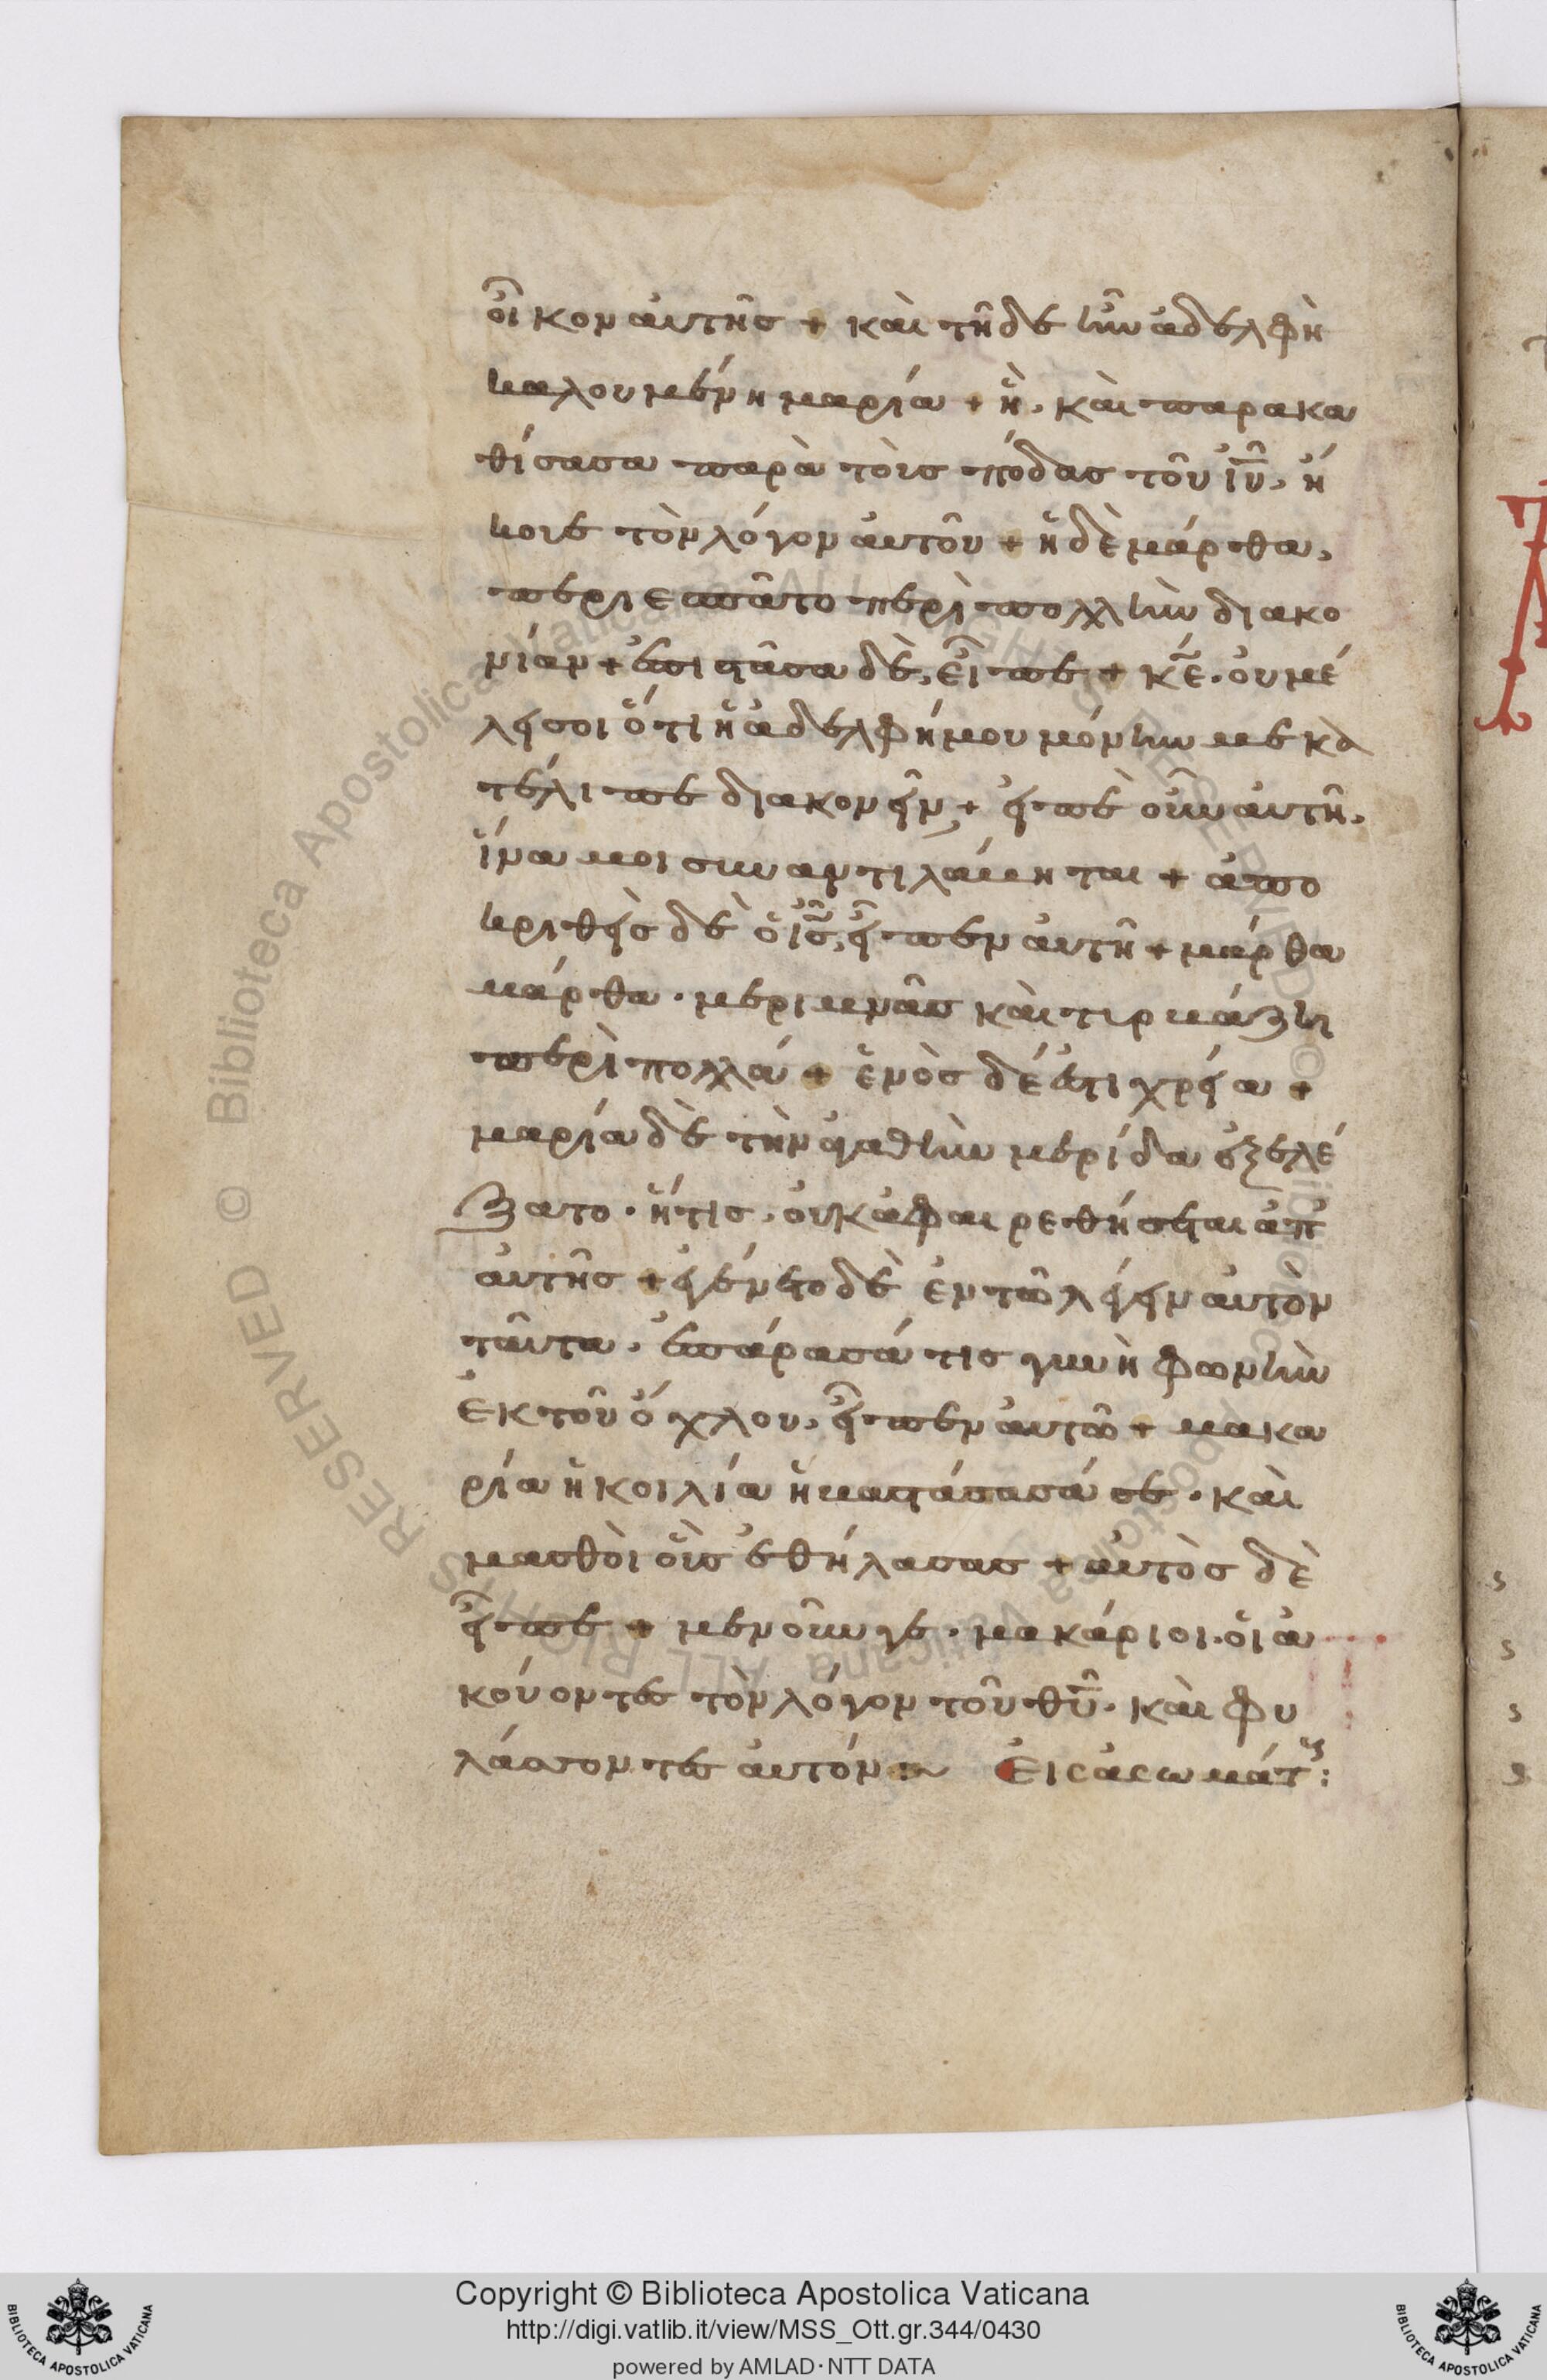 οἶκον αὐτῆς + καὶ τῆδε ἦν ἀδελφὴ
καλουμένη μαρία + ἣ, καὶ παρακα
θίσασα παρὰ τοὺς πόδας τοῦ ἰῦ, ἤ
κουε τὸν λόγον αὐτοῦ + ἡ δὲ μάρθα,
περιεσπᾶτο περὶ πολλὴν διακο
νίαν + ἐπιστᾶσα δὲ, εἶπε + κε̄ · οὐ μέ
λει σοι ὅτι ἡ ἀδελφή μου μόνην με κα
τέλιπε διακονεῖν + εἰπὲ οὖν αὐτῆ,
ἵνα μοι συναντιλάμηται + ἀπο
κριθεὶς δὲ ὁ ἰς̄, εἶπεν αὐτῆ + μάρθα
μάρθα · μεριμνᾶς καὶ τυρβάζη
περὶ πολλά + ἑνὸς δέ ἐστι χρεία +
μαρία δὲ τὴν ἀγαθὴν μερίδα ἐξελέ
ξατο · ἥτις, οὐκ ἀφαιρεθήσεται ἀπ'
αὐτῆς + ἐγένετο δὲ ἐν τῶ λέγειν αὐτὸν
ταῦτα · ἐπάρασά τις γυνὴ φωνὴν
ἐκ τοῦ ὄχλου, εἶπεν αὐτῶ + μακα
ρία ἡ κοιλία ἡ βαστάσασά σε · καὶ
μασθοὶ οὓς ἐθήλασας + αὐτὸς δὲ
εἶπε + μενοῦνγε · μακάριοι · οἱ ἀ
κούοντες τὸν λόγον τοῦ θῦ · καὶ φυ
λάσσοντες αὐτόν :~ Εἰς ἀσωμάτ :
Copyright © Biblioteca Apostolica Vaticana
http://digi.vatlib.it/view/MSS_Ott.gr.344/0430
powered by AMLAD·NTT DATA
BIBLIOTECA APOSTOLICA VATICANA
BIBLIOTECA APOSTOLICA VATICANA